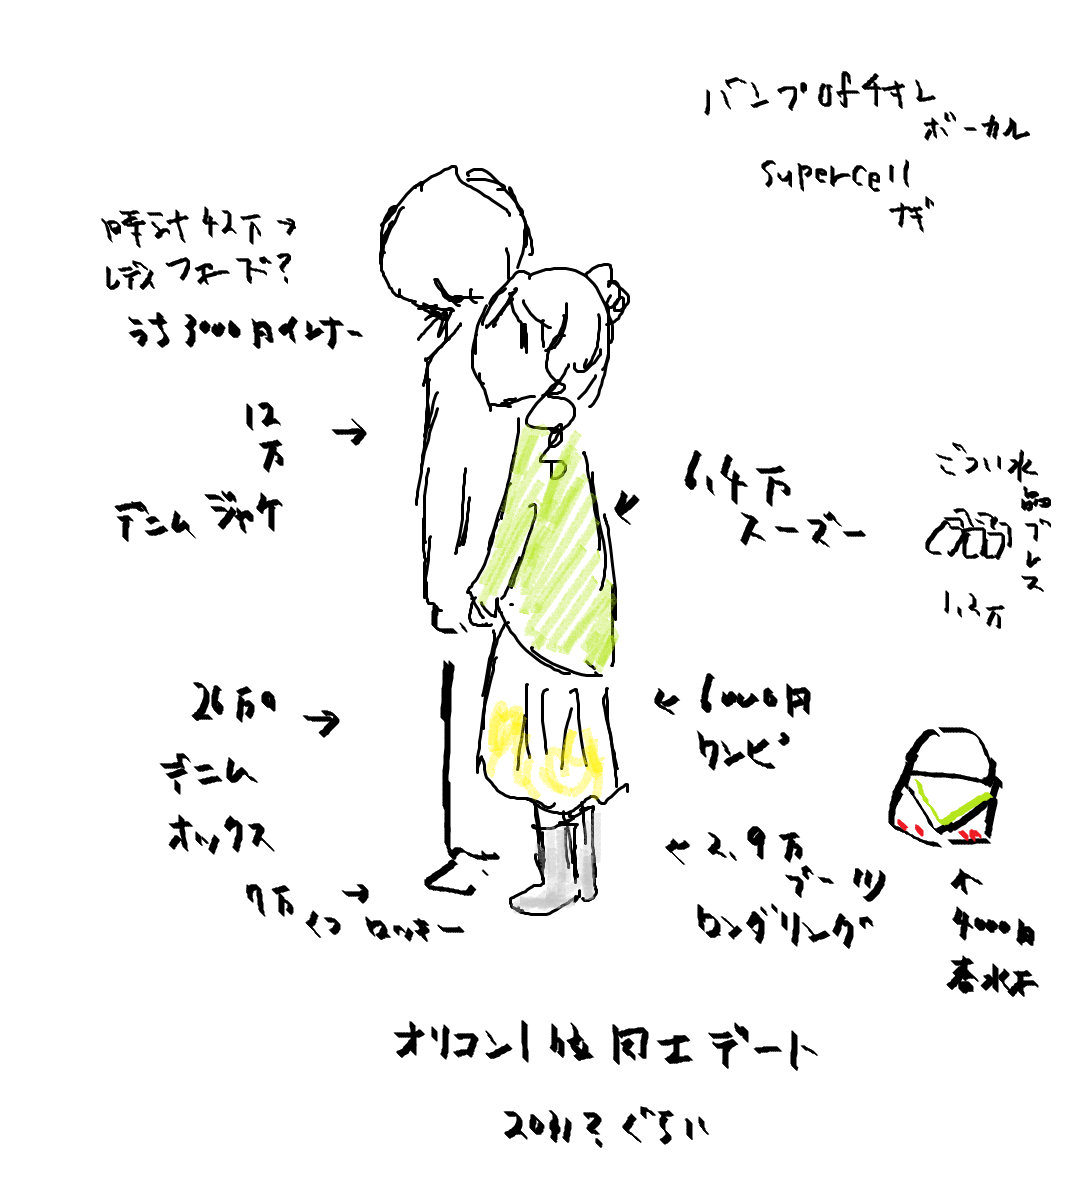 バンプofチキン
ボーカル
supercell
ナギ
時計42万→
レディスフォード?
うち3000円インナー
12
万
→
デニムジャケ
6.4万
スーズー
ごつい水
晶ブレス
1.2万
26万の
→
デニム
ボックス
←6000円
ワンピ
←2.9万
ブーツ
ロングリング
7万→
くつ ロッキー
↑
4000円
香水不
オリコン1位同士デート
2031?ぐらい